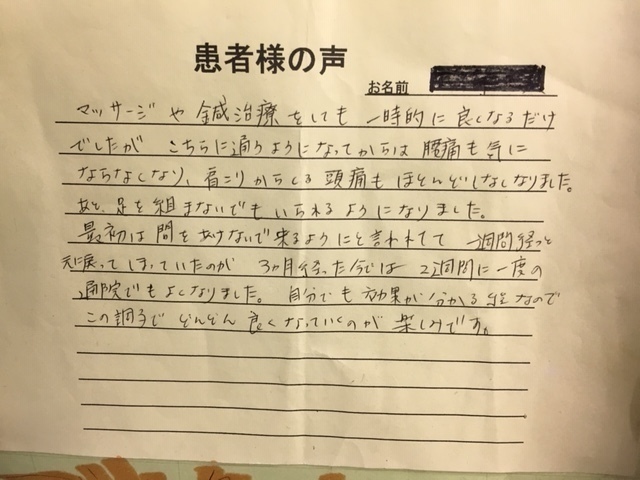 患者様の声
お名前
マッサージや鍼治療をしても 一時的に良くなるだけ
でしたが こちらに通うようになってからは 腰痛も気に
ならなくなり、肩こりからくる頭痛もほとんどしなくなりました。
あと、足を組まないでもいられるようになりました。
最初は間をあけないで来るようにと言われてて 一週間経つと
元に戻ってしまっていたのが 3ヵ月経った今では 2週間に一度の
通院でもよくなりました。 自分でも効果が分かる程なので
この調子で どんどん良くなっていくのが 楽しみです。